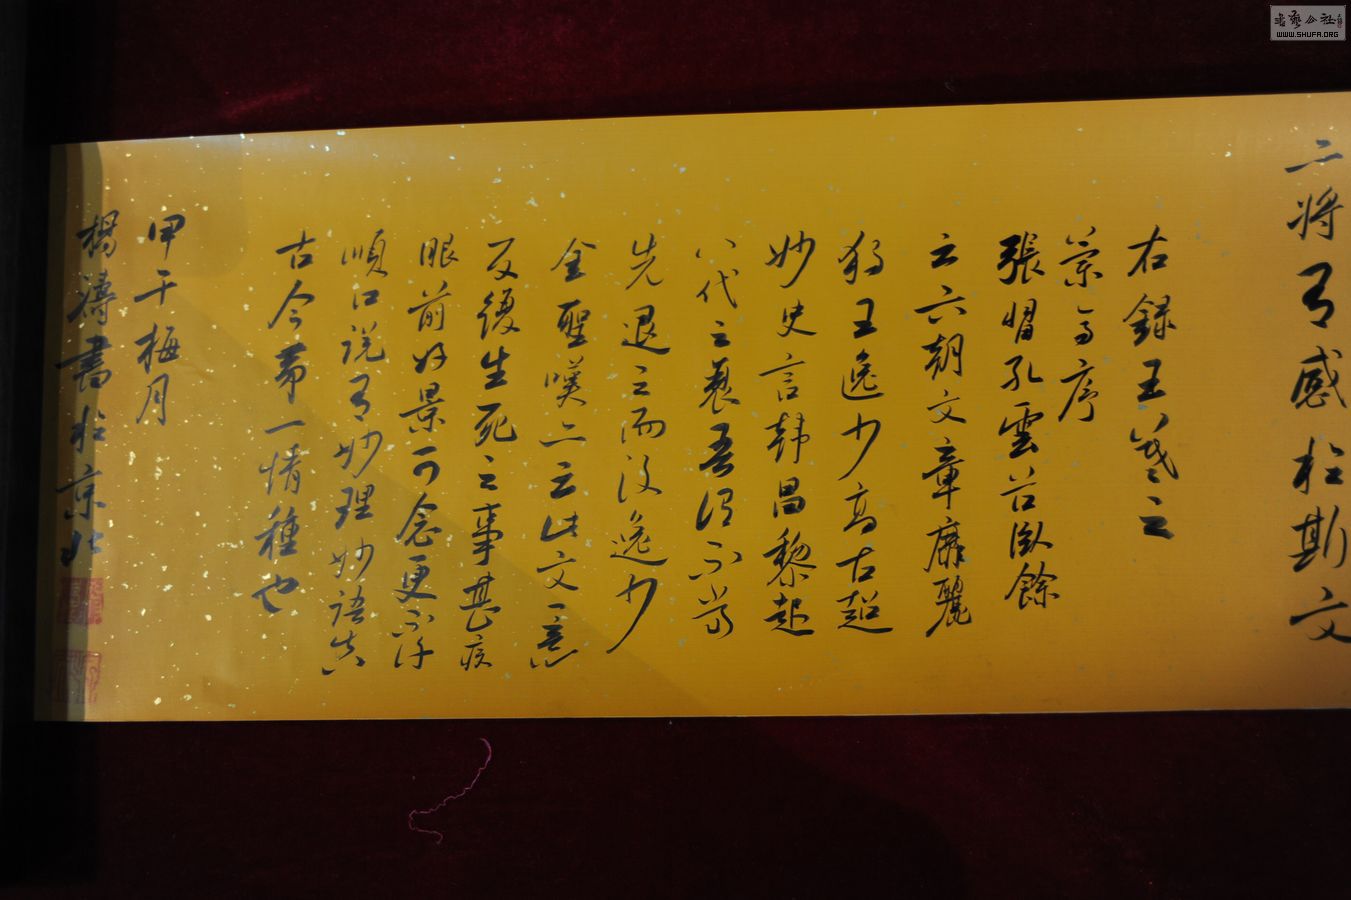 亦将有感於斯文
右録王羲之
蘭亭序
張帽孔雲谷卧餘
云六朝文章靡麗
獨王逸少高古超
妙史言韓昌黎起
八代之衰吾謂不當
先退之而後逸少
金聖嘆亦云此文一意
反復生死之事甚疾
眼前好景可念更不許
順口説有妙理妙語真
古今第一情種也
甲午梅月
楊濤書於京北
書藝公社
WWW.SHUFA.ORG